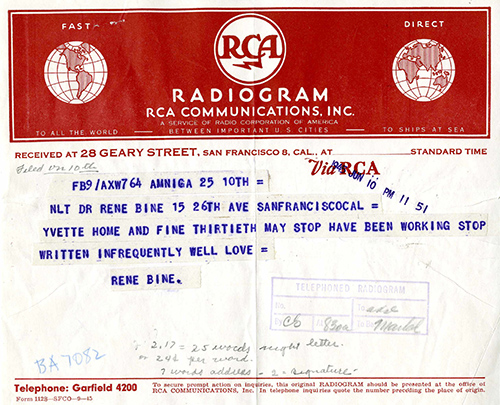 FAST
DIRECT
RCA
RADIOGRAM
RCA COMMUNICATIONS, INC.
A SERVICE OF RADIO CORPORATION OF AMERICA
TO ALL THE WORLD
BETWEEN IMPORTANT U.S. CITIES
TO SHIPS AT SEA
RECEIVED AT 28 GEARY STREET, SAN FRANCISCO 8, CAL., AT STANDARD TIME
Filed on 10th
Via RCA
JUN 10 PM 11 51
FB9/AXW764 AMNIGA 25 10TH =
NLT DR RENE BINE 15 26TH AVE SANFRANCISCOCAL =
YVETTE HOME AND FINE THIRTIETH MAY STOP HAVE BEEN WORKING STOP
WRITTEN INFREQUENTLY WELL LOVE =
RENE BINE.
TELEPHONED RADIOGRAM
To
By Cb 830a
2.17 = 25 words night letter.
or 24¢ per word.
7 words address - 2 = signature -
BA 7082
Telephone: Garfield 4200
To secure prompt action on inquiries, this original RADIOGRAM should be presented at the office of
Form 112S—SFCO—9-45
RCA COMMUNICATIONS, Inc. In telephone inquiries quote the number preceding the place of origin.